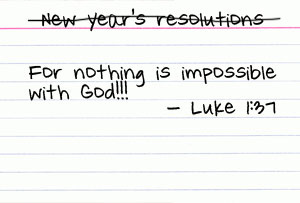 New year's resolutions
For nothing is impossible
with God!!!
— Luke 1:37